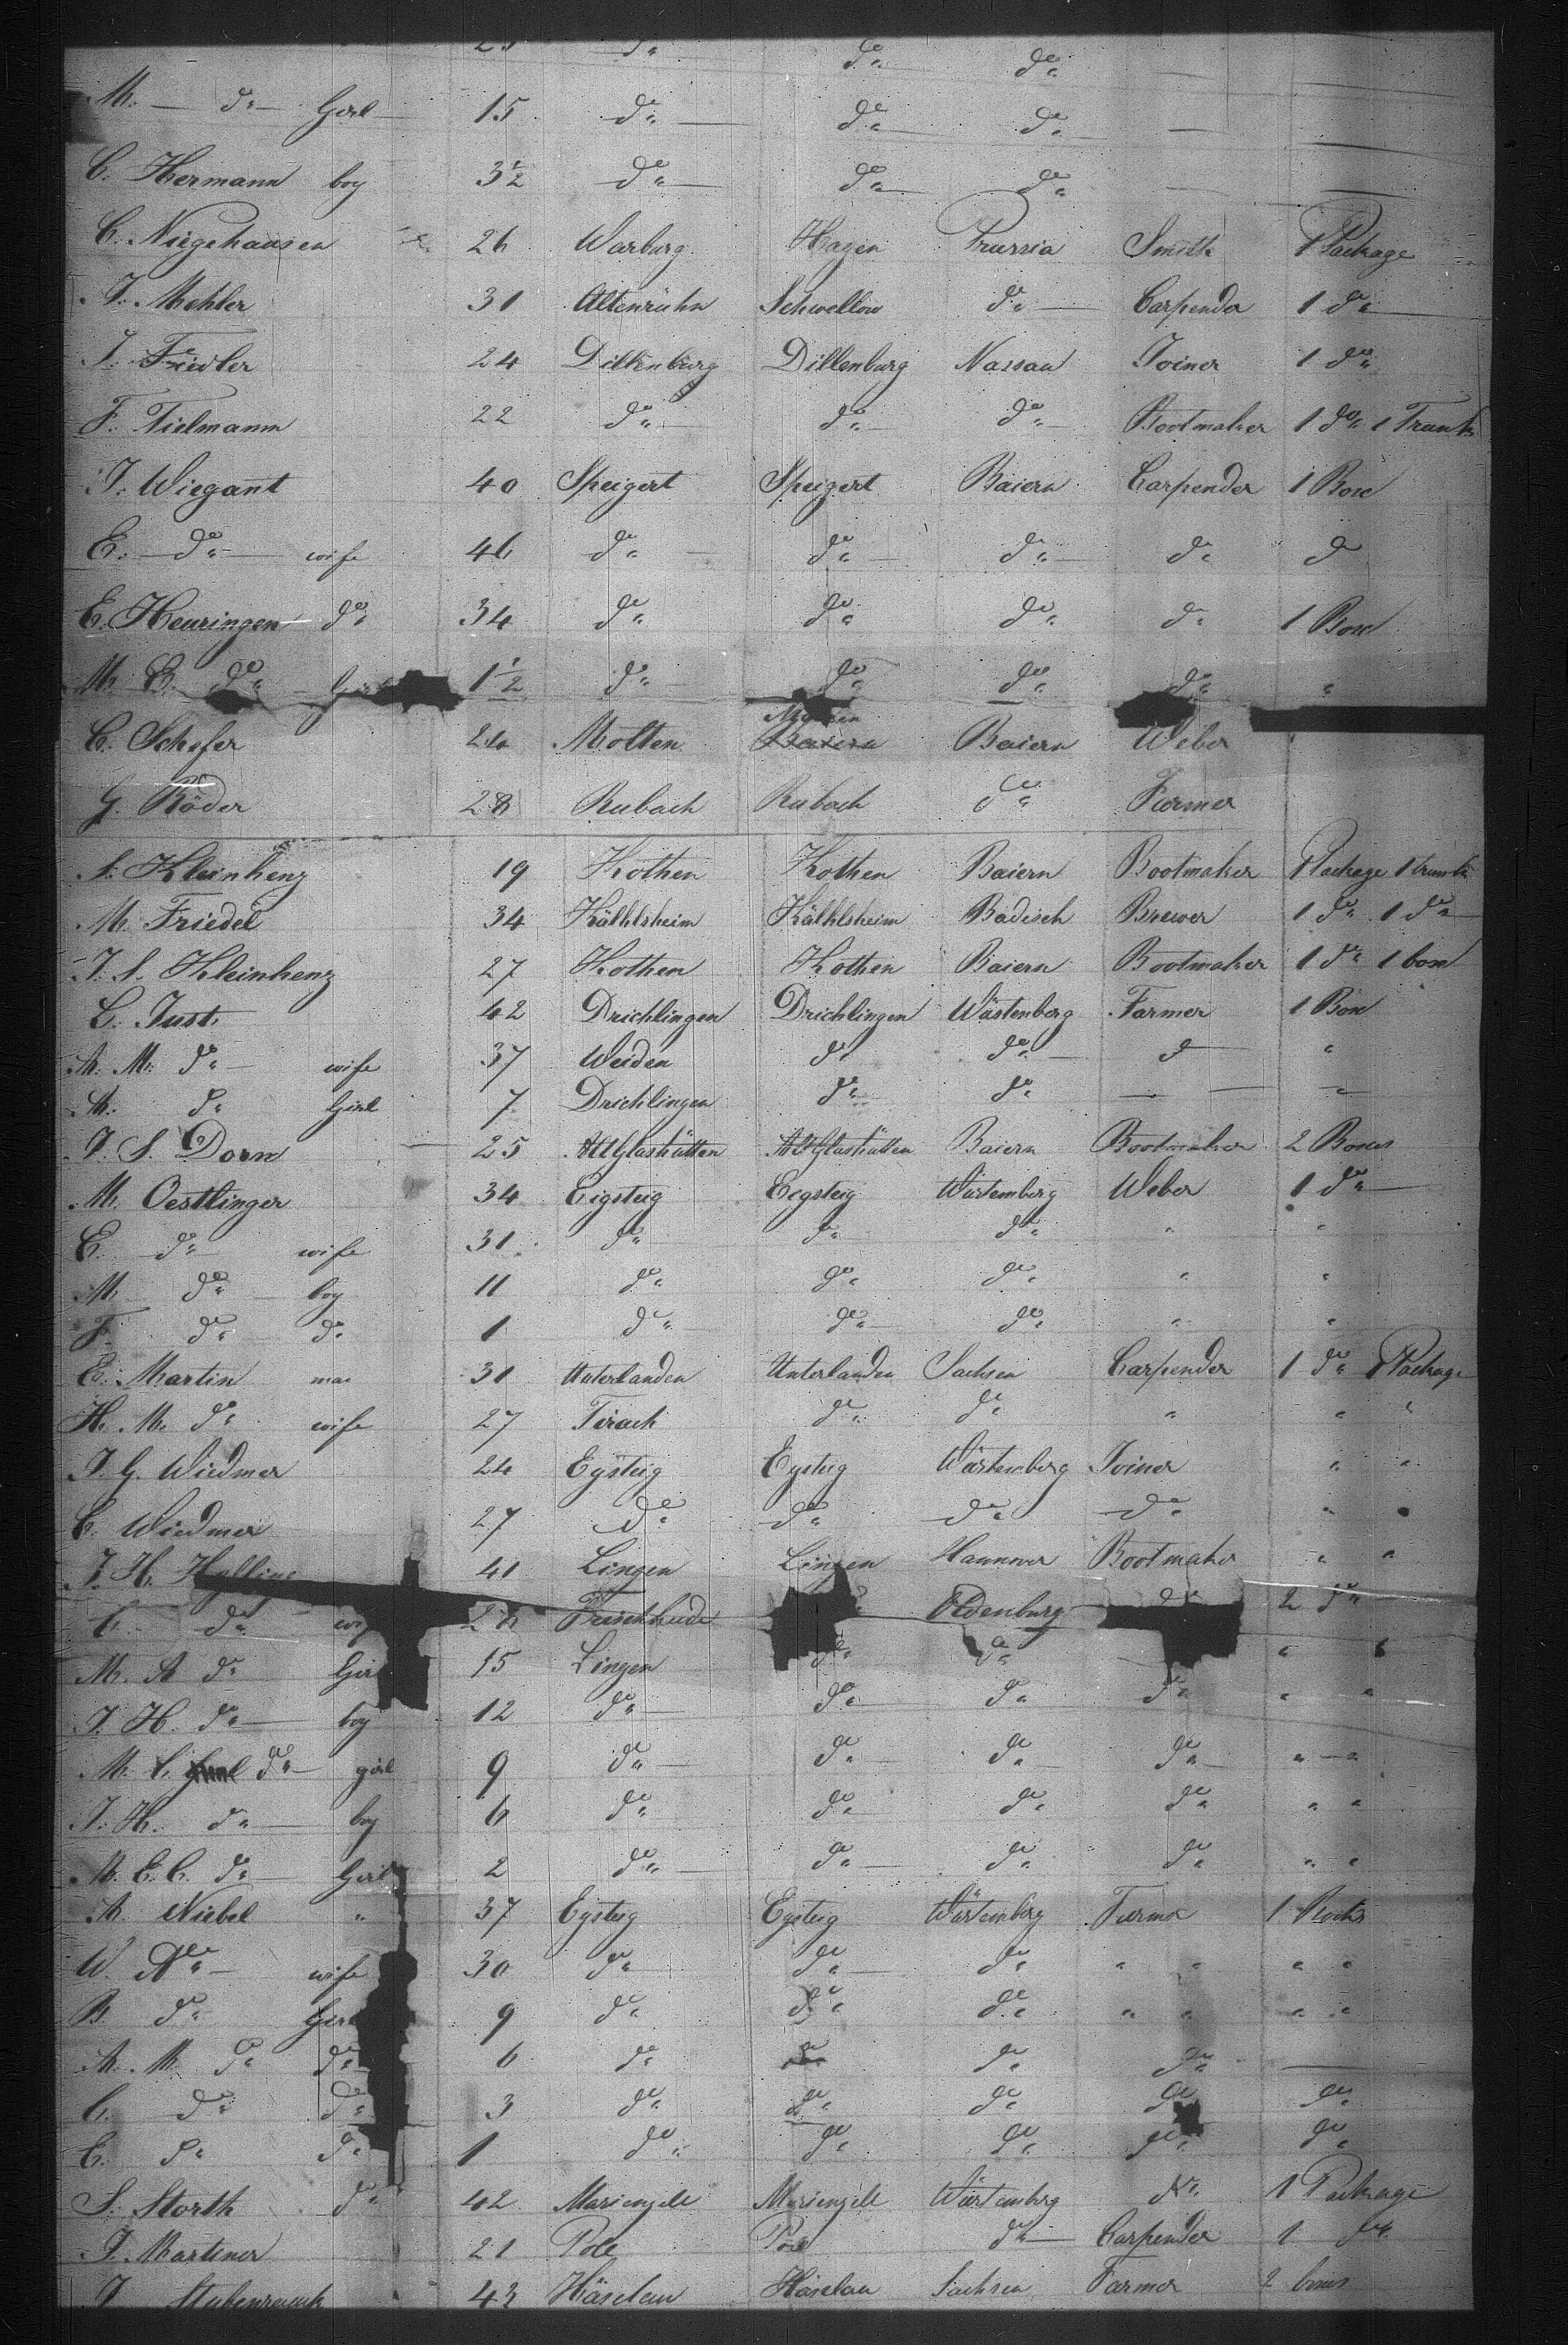 25 do do do
M. — do — Girl 15 do do do —
C. Hermann boy 3½ do do do —
C. Niegehausen 26 Warburg Hagen Prussia Smith 1 Package
J. Mehler 31 Altenrühn Schwellow do Carpender 1 do
J. Friedler 24 Dillenburg Dillenburg Nassau Joiner 1 do
F. Tielmann 22 do do do Bootmaker 1 do 1 Trunk
J. Wiegant 40 Speigert Speigert Baiern Carpender 1 Box
E. — do — wife 46 do do do do do
E. Heuringen do 34 do do do do 1 Box
M. B. do 1½ do do do do "
C. Schefer 24 Molten Baiern Baiern Weber
G. Röder 28 Rubach Rubach do Farmer
S. Kleinhenz 19 Kothen Kothen Baiern Bootmaker 1 Package 1 trunk
M. Friedel 34 Külhlsheim Külhlsheim Badisch Brewer 1 do 1 do
J. S. Kleinhenz 27 Kothen Kothen Baiern Bootmaker 1 do 1 box
C. Just 42 Drichlingen Drichlingen Würtenberg Farmer 1 Box
A. M. do wife 37 Weiden do do do "
A. do Girl 7 Drichlingen do do — "
J. S. Dorn 25 Alt Glashütten Alt Glashütten Baiern Bootmaker 2 Boxes
M. Oestlinger 34 Eigsteig Eigsteig Würtemberg Weber 1 do
C. do wife 31 do do do " "
M. do boy 11 do do do " "
F. do do 1 do do do " "
E. Martin 31 Unterlanden Unterlanden Sachsen Carpender 1 do 1 Package
H. M. do wife 27 Tirach do do " " "
J. G. Wiedmer 24 Eysteig Eysteig Würtemberg Joiner " "
C. Wiedmer 27 do do do do " "
J. H. 41 Lingen Lingen Hannover Bootmaker " "
C. do Oldenburg do 2 do
M. A do Girl 15 Lingen do do " "
J. H. do boy 12 do do do do " "
M. C. do girl 9 do do do do " "
J. H. do boy 6 do do do do " "
M. E. C. do Girl 2 do do do do " "
A. Niebel " 37 Eysteig Eysteig Würtemberg Farmer 1
W. do wife 30 do do do " " " "
B do Girl 9 do do do " " " "
A. M. do do 6 do do do do —
C. do do 3 do do do do do
C. do do 1 do do do do do
S. Storth do 42 Marienzell Marienzell Würtemberg do 1 Package
J. Martiner 21 Pole Pole do Carpender 1 do
J. Stubenrauch 43 Häselau Häselau Sachsen Farmer 2 boxes